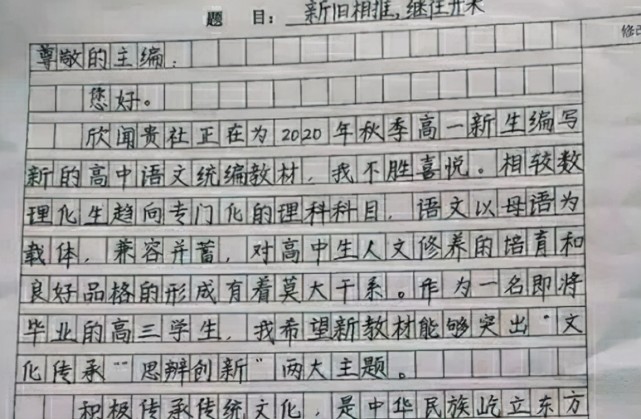 题 目: 新旧相推,继往开来
修改
尊敬的主编:
您好。
欣闻贵社正在为2020年秋季高一新生编写
新的高中语文统编教材,我不胜喜悦。相较数
理化生趋向专门化的理科科目,语文以母语为
载体,兼容并蓄,对高中生人文修养的培育和
良好品格的形成有着莫大干系。作为一名即将
毕业的高三学生,我希望新教材能够突出“文
化传承”“思辨创新”两大主题。
积极传承传统文化,是中华民族屹立东方